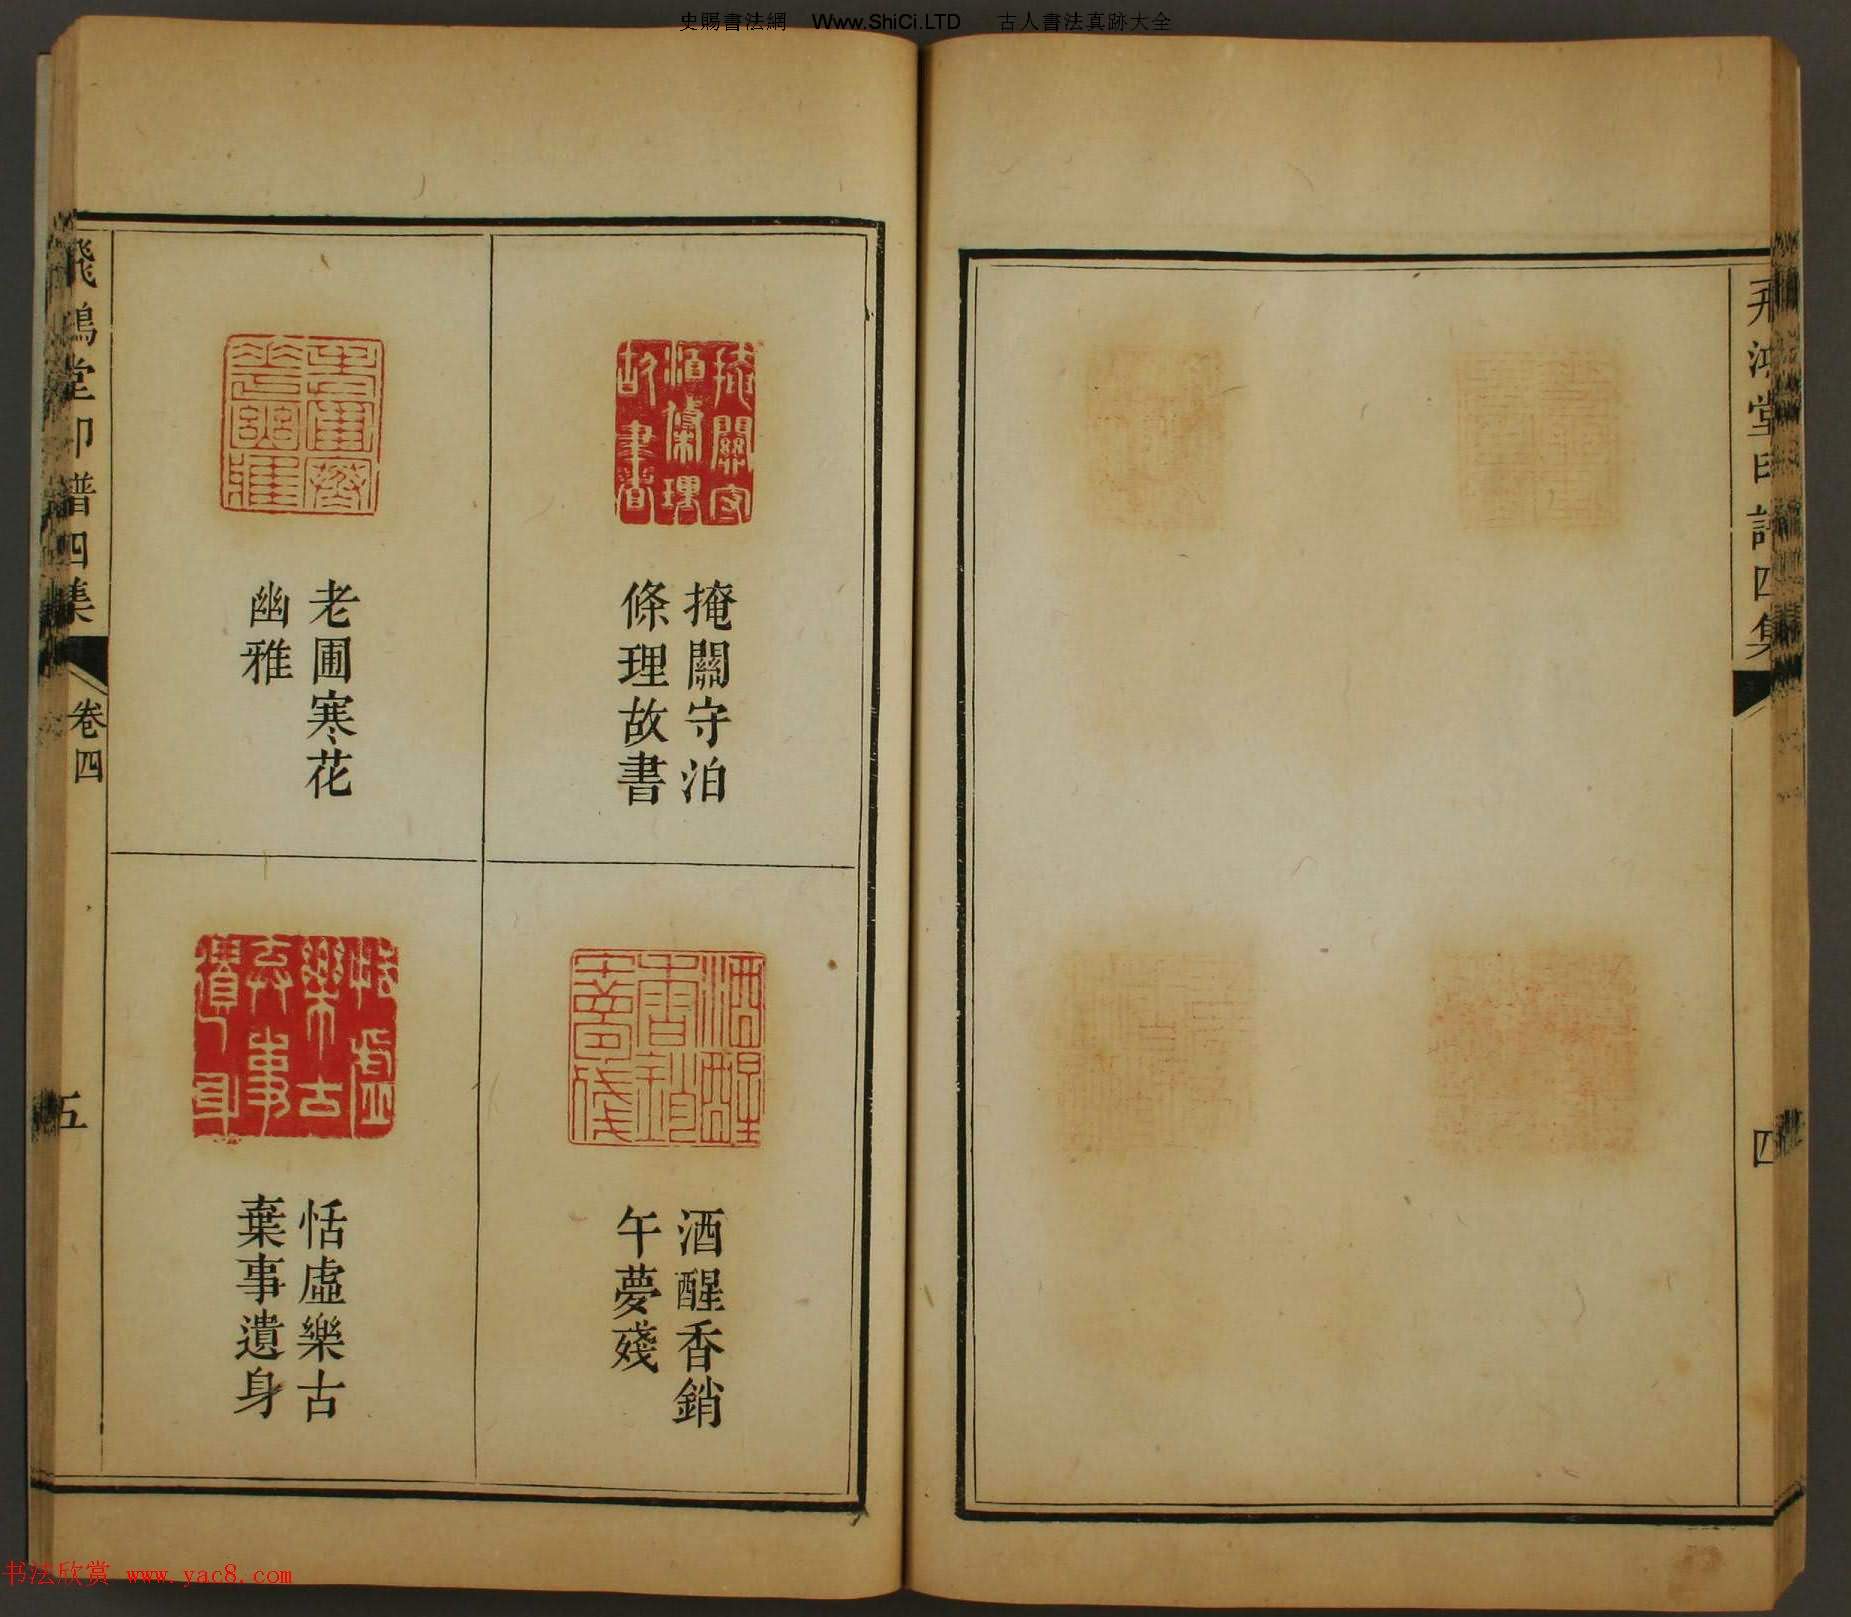 史賜書法網 Www.ShiCi.LTD 古人書法真跡大全
飛鴻堂印譜四集
四
掩關守泊
條理故書
酒醒香銷
午夢殘
老圃寒花
幽雅
恬虛樂古
棄事遺身
飛鴻堂印譜四集
卷四
五
书法欣赏 www.yac8.com